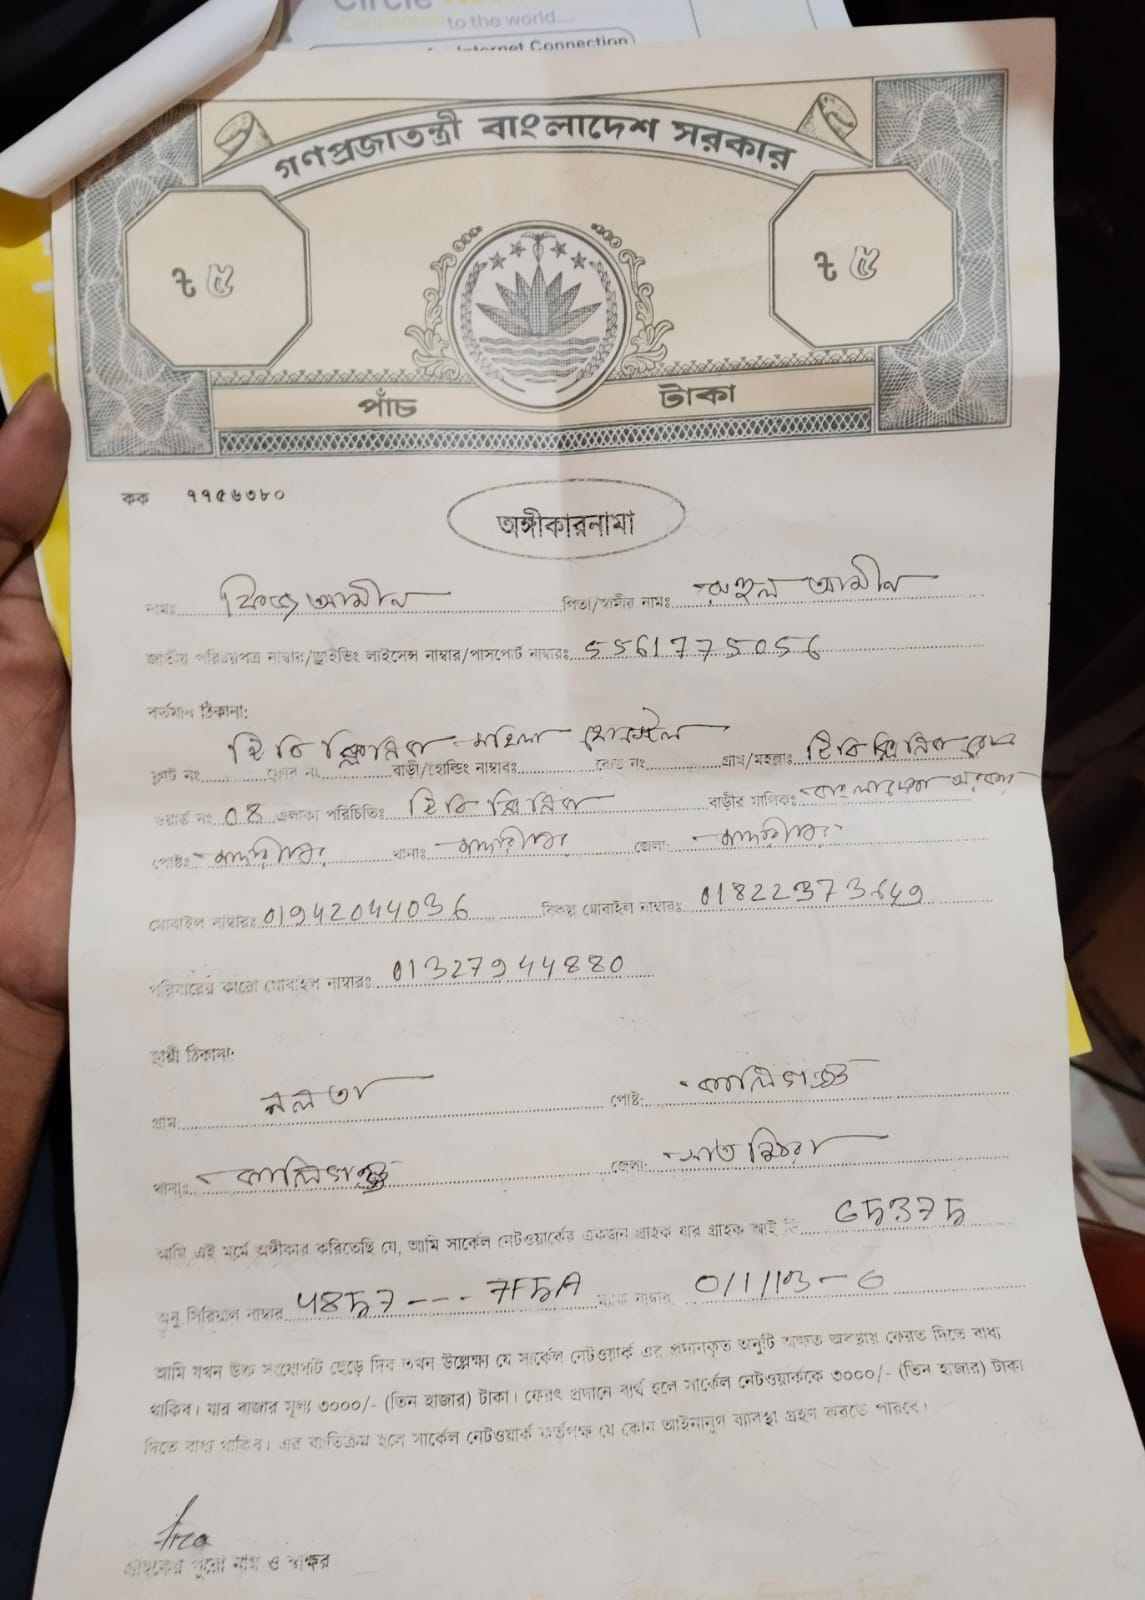 Circle
to the world....
Internet Connection
গণপ্রজাতন্ত্রী বাংলাদেশ সরকার
৳ ৫ ৳ ৫
পাঁচ টাকা
কক ৭৭৫৬৩৮০
অঙ্গীকারনামা
নামঃ ফিরোজ আমীন পিতা/স্বামীর নামঃ রুহুল আমীন
জাতীয় পরিচয়পত্র নাম্বার/ড্রাইভিং লাইসেন্স নাম্বার/পাসপোর্ট নাম্বারঃ 5561775056
বর্তমান ঠিকানা:
টি বি ক্লিনিক মহিলা হোস্টেল
ফ্লাট নং ফ্লোর নং বাড়ী/হোল্ডিং নাম্বারঃ রোড নং গ্রাম/মহল্লাঃ টি বি ক্লিনিক রোড
ওয়ার্ড নং 04 এলাকা পরিচিতিঃ টি বি ক্লিনিক বাড়ীর মালিকঃ বাংলাদেশ সরকার
পোষ্টঃ থানাঃ জেলা:
মোবাইল নাম্বারঃ 01942044036 বিকল্প মোবাইল নাম্বারঃ 01822373649
পরিবারের কারো মোবাইল নাম্বারঃ 01327944880
স্থায়ী ঠিকানা:
গ্রাম: নলতা পোষ্ট: কালিগঞ্জ
থানাঃ কালিগঞ্জ জেলা: সাতক্ষিরা
আমি এই মর্মে অঙ্গীকার করিতেছি যে, আমি সার্কেল নেটওয়ার্কের একজন গ্রাহক যার গ্রাহক আই ডি 65375
অনু সিরিয়াল নাম্বার 4857 --- 7F5A নাম্বার, 0/1/13-6
আমি যখন উক্ত সংযোগটি ছেড়ে দিব তখন উল্লেখ্য যে সার্কেল নেটওয়ার্ক এর প্রদানকৃত অনুটি অক্ষত অবস্থায় ফেরত দিতে বাধ্য
থাকিব। যার বাজার মূল্য ৩০০০/- (তিন হাজার) টাকা। ফেরৎ প্রদানে ব্যর্থ হলে সার্কেল নেটওয়ার্ককে ৩০০০/- (তিন হাজার) টাকা
দিতে বাধ্য থাকিব। এর ব্যতিক্রম হলে সার্কেল নেটওয়ার্ক কর্তৃপক্ষ যে কোন আইনানুগ ব্যবস্থা গ্রহণ করতে পারবে।
গ্রাহকের পুরো নাম ও স্বাক্ষর